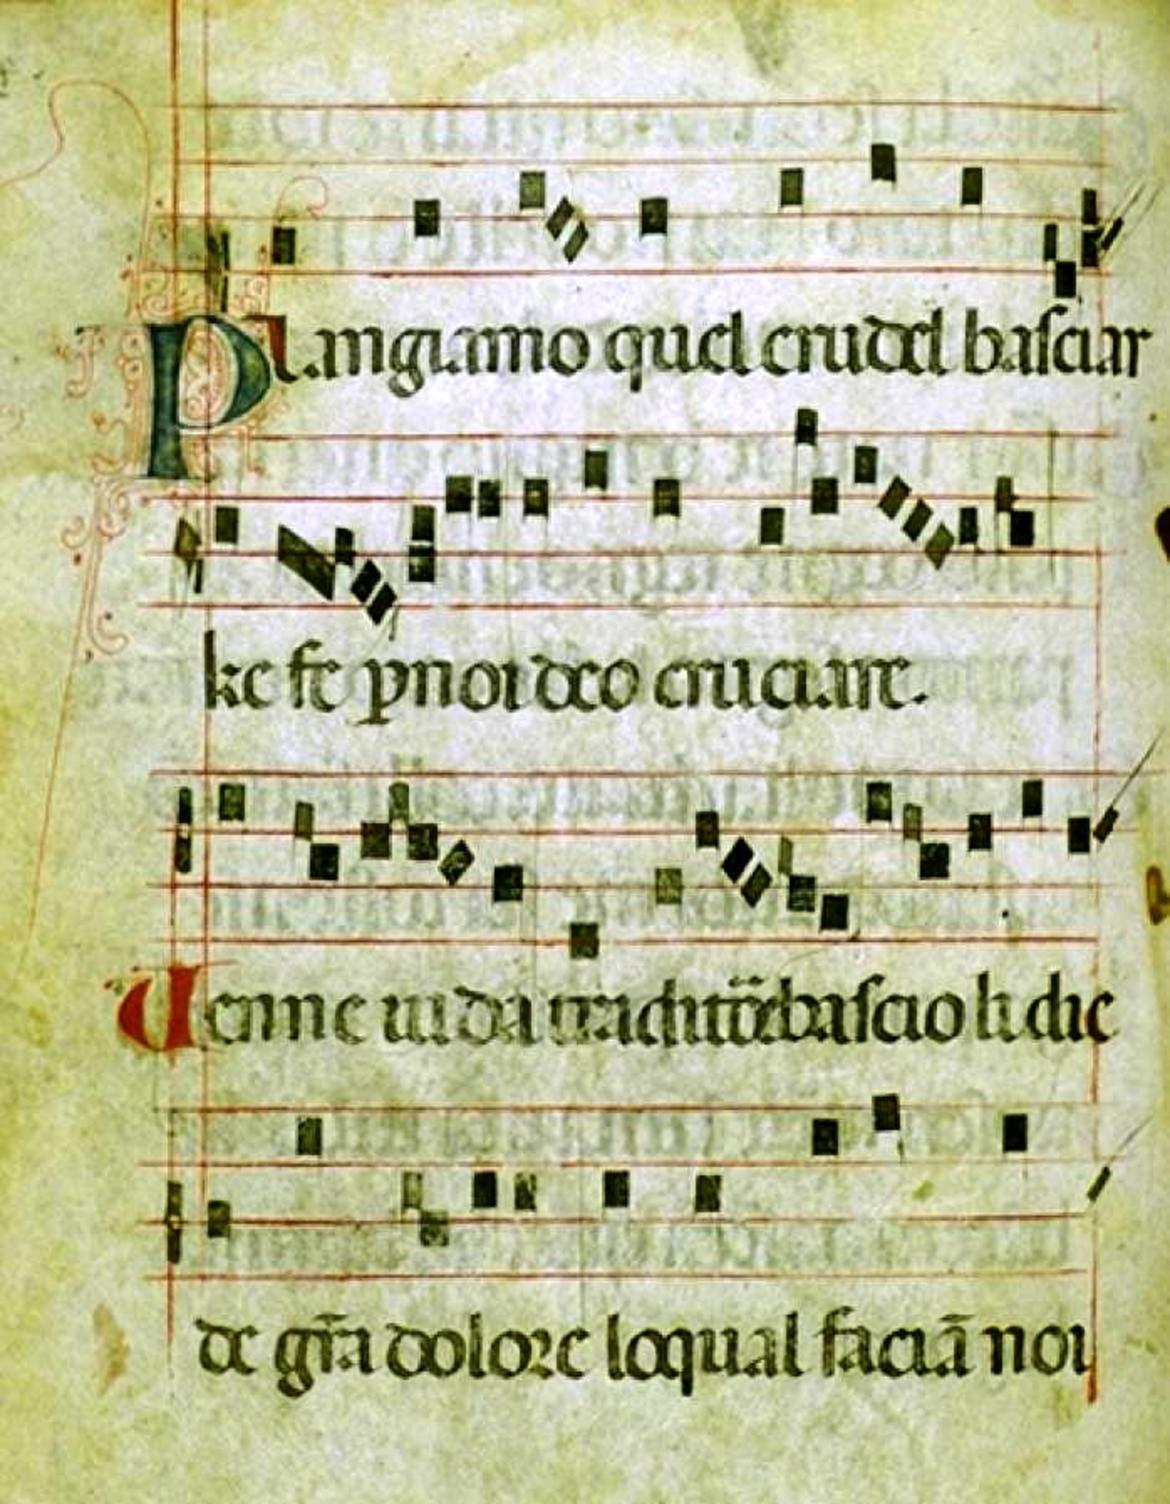 Plangiamo quel crudel basciar
ke fe p noi deo cruciare.
Venne iuda traditōe bascio li die
de grā dolore loqual faciā noi